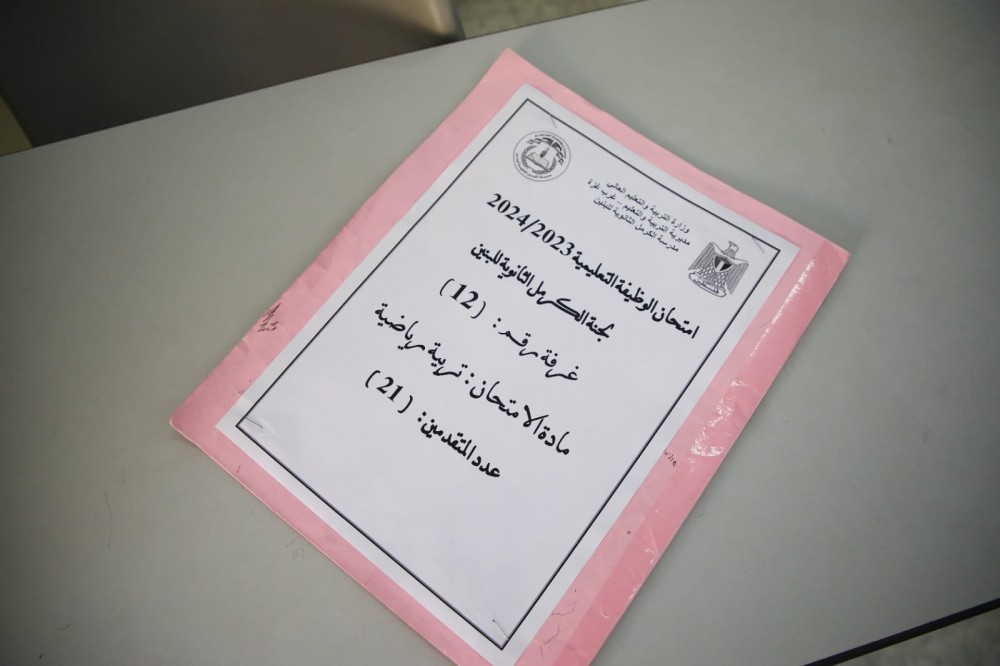 وزارة التربية والتعليم العالي
مديرية التربية والتعليم – غرب غزة
مدرسة الكرمل الثانوية للبنين
امتحان الوظيفة التعليمية 2024/2023
لجنة الكرمل الثانوية للبنين
غرفة رقم : (12)
مادة الامتحان : تربية رياضية
عدد المتقدمين : (21)